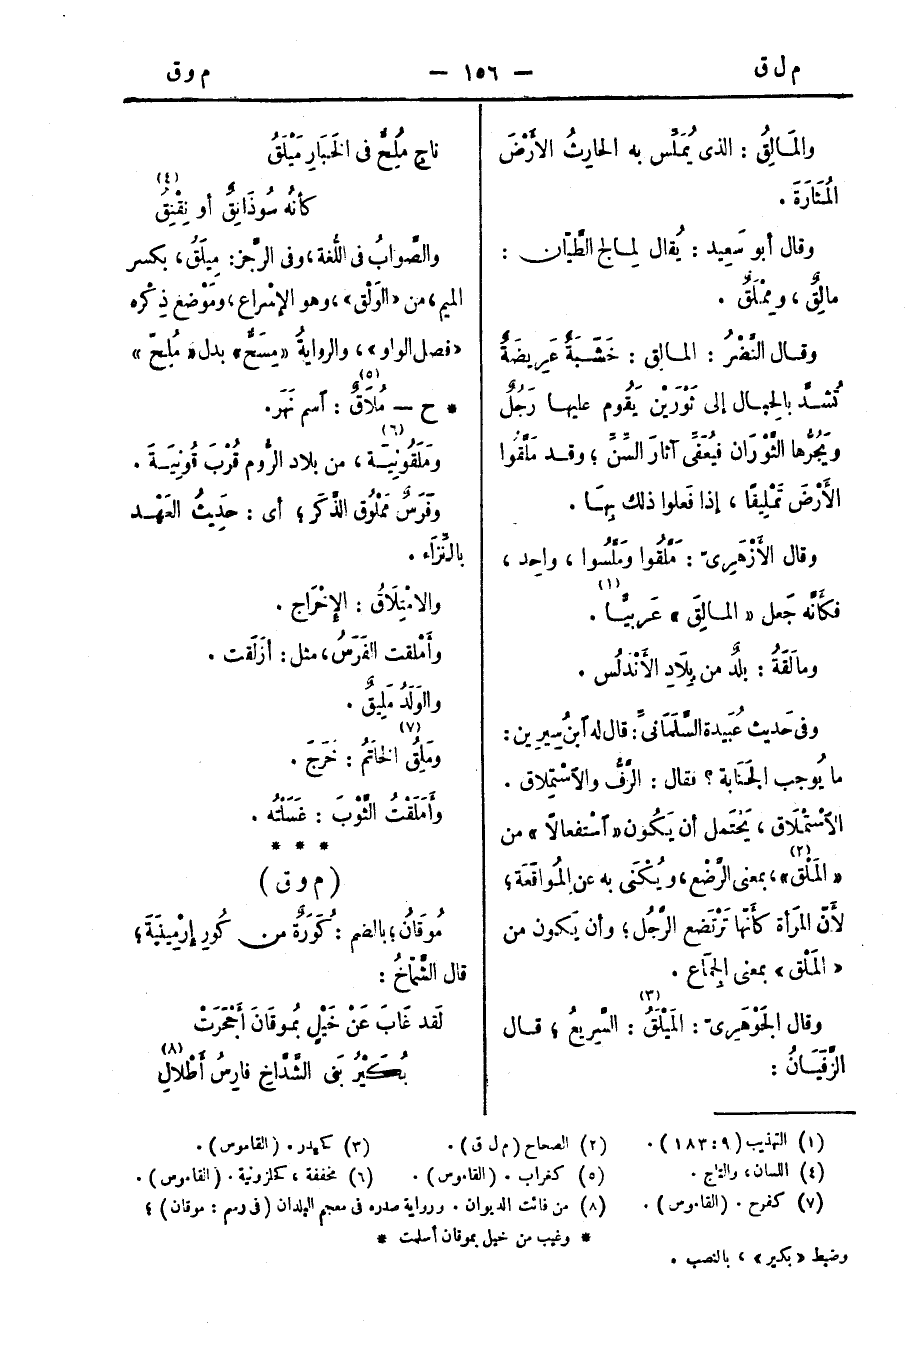 م ل ق — ١٥٦ — م و ق
والمَالِقُ : الذى يُمَلِّس به الحارِثُ الأَرْضَ
المُثَارَةَ .
وقال أبو سَعِيد : يُقال لِمالج الطَّيّان :
مالِقٌ ، ومِمْلَقٌ .
وقال النَّضْرُ : المالِق : خَشَبَةٌ عَرِيضَةٌ
تُشدّ بالحِبال إلى ثَوْرَيْن يَقُوم عليها رَجُلٌ
ويَجُرُّها الثَّوْرَان فيُعَفِّى آثارَ السِّنِّ ؛ وقد مَلَّقُوا
الأَرْضَ تَمْلِيقًا ، إذا فَعلوا ذلك بِهَا .
وقال الأَزْهَرِىّ : مَلَّقُوا ومَلَّسُوا ، واحِد ،
فكأَنَّه جَعل « المالِقَ » عَربيًّا (١) .
ومالَقَةُ : بلدٌ من بِلَادِ الأَنْدلُس .
وفى حَديث عُبَيدة السَّلَمَانىّ : قال له ٱبنُ سِيرِين :
ما يُوجب الجَنَابة ؟ فقال : الرَّفُّ والٱسْتِملاق .
الٱسْتِمْلَاق ، يَحْتمل أن يَكُون « ٱسْتفعالاً » من
« المَلْق » (٢) ، بمعنى الرَّضْع ، ويُكْنَى به عن المُواقَعة ؛
لأَنّ المَرأة كأَنّها تَرْتَضع الرَّجُل ؛ وأن يَكون من
« المَلْق » بمعنى الجِمَاع .
وقال الجَوْهَرِىّ : المَيْلَقُ (٣) : السَّرِيعُ ؛ قال
الزَّفَيَانُ :
ناجٍ مُلِحٌّ فى الخَبَارِ مَيْلَقُ
كأنّه سُوذَانِقٌ أو نِقْنِقُ (٤)
والصَّوابُ فى اللُّغة ، وفى الرَّجز : مِيلَقُ ، بكسر
الميم ، من « الوَلْق » ، وهو الإسْراع ، ومَوْضع ذِكْره
« فصل الواو » ، والروايةُ « مِسَحٌّ » بدل « مُلِحّ »
* ح — مُلَاقٌ (٥) : ٱسم نَهَر .
ومَلَقُونِيَة (٦) ، من بلاد الرُّوم قُرْبَ قُونِيَة .
وفَرَسٌ مَمْلُوق الذَّكَر ؛ أى : حَدِيثُ العَهْد
بالنِّزَاء .
والامْتِلَاقُ : الإِخْرَاج .
وأَمْلقت الفَرَسُ ، مثل : أزلَقت .
والوَلَدُ مَلِيقٌ .
ومَلِقَ الخَاتَمُ (٧) : خَرَجَ .
وأَمَلَقْتُ الثَّوْبَ : غَسَلْتُه .
* * *
( م و ق )
مُوقَانُ ؛ بالضم : كُورَةٌ من كُورِ إرْمِينِيَةَ ؛
قال الشَّمّاخُ :
لَقد غَابَ عَنْ خَيْلٍ بمُوقَانَ أَحْجَرَتْ
بُكَيْرُ بَنى الشَّدَّاخِ فارِسُ أَطْلالِ (٨)
(١) التهذيب ( ٩ : ١٨٣ ) . (٢) الصحاح ( م ل ق ) . (٣) كحيدر . ( القاموس ) .
(٤) اللسان ، والتاج . (٥) كغراب . ( القاموس ) . (٦) مخففة ، كحلزونية . ( القاموس ) .
(٧) كفرح . ( القاموس ) . (٨) من فائت الديوان . ورواية صدره فى معجم البلدان ( فى رسم : موقان ) ؛
* وغيب من خيل بموقان أسلمت *
وضبط « بكير » ، بالنصب .